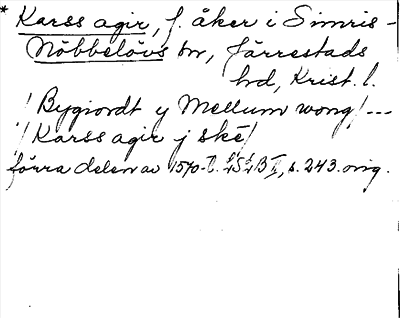 * Karss agir, f. åker i Simris-
Nöbbelövs sn, Järrestads
hd, Krist. l.
/Bygiordt y Mellum wong/---
/Karss agir j ske/
förra delen av 1570-t. LSLB II, s. 243. orig.